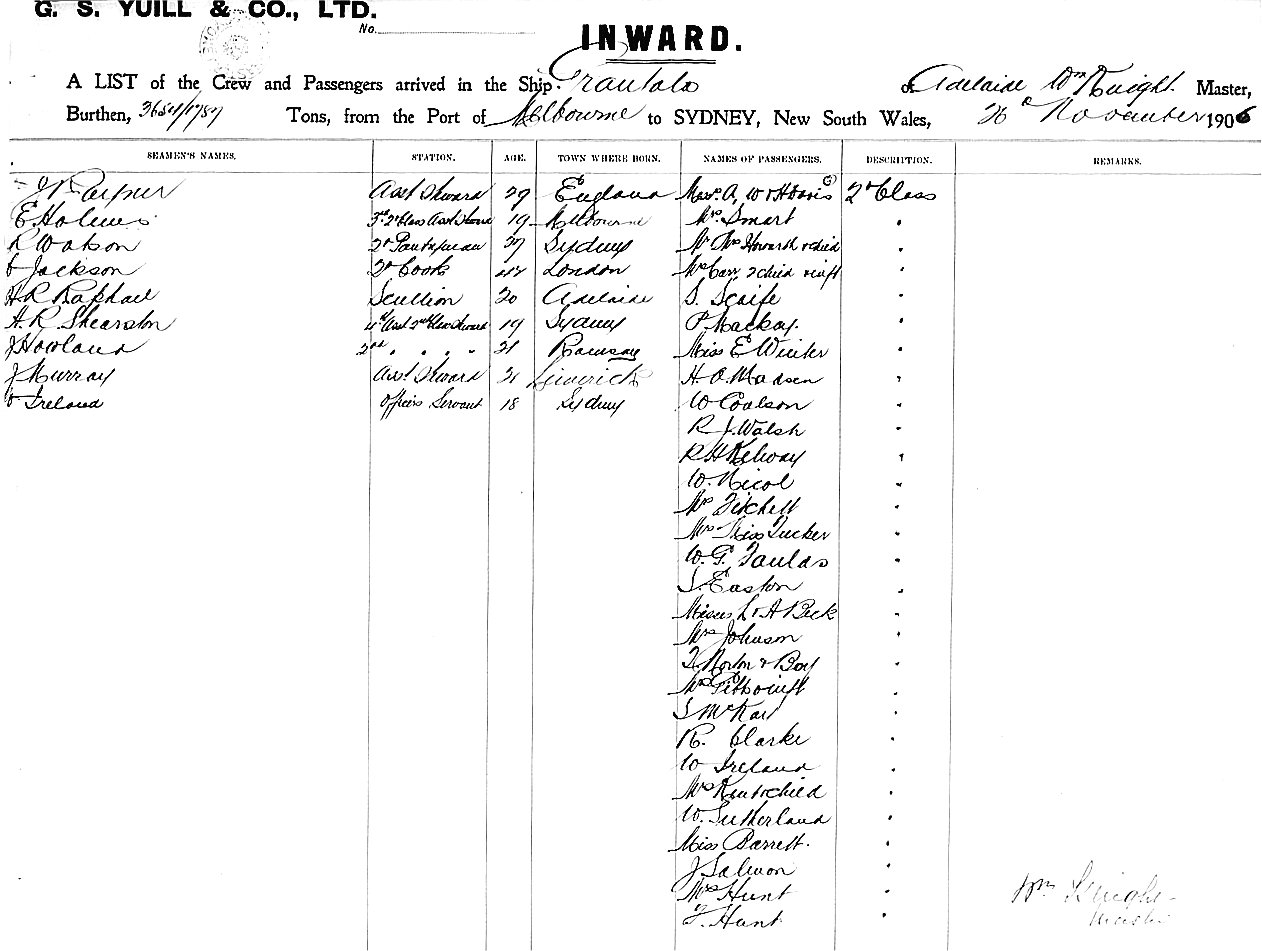 G. S. YUILL & CO., LTD.
No.
INWARD.
A LIST of the Crew and Passengers arrived in the Ship Grantala of Adelaide Wm Knight Master,
Burthen, Tons, from the Port of Melbourne to SYDNEY, New South Wales, 26th November 1906
SEAMEN'S NAMES. STATION. AGE. TOWN WHERE BORN. NAMES OF PASSENGERS. DESCRIPTION. REMARKS.
Asst Steward 29 England Messrs A, W & H Davis (3) 2d Class
E Holmes 3rd 2d Class Asst Steward 19 Melbourne Mrs Smart "
R Watson 2d Pantryman 27 Sydney Mr Mrs Howarth & child "
Jackson 2d Cook London Mrs Carr 2 child & inft "
H R Raphael Scullion 20 Adelaide S. Scaife "
H. R. Shearston 4th Asst 2nd Class Steward 19 Sydney P Mackay. "
J Howland 2nd " " " " 21 Ramsay Miss E Winter "
J Murray Asst Steward 21 Limerick H. O. Madsen "
Ireland Officers Servant 18 Sydney W Coulson "
R J. Walsh "
R H Kelway "
W. Nicol "
Mrs Fitchett "
Mrs Miss Tucker "
W. G. Faulds "
S. Easton "
Misses L & A Beck "
Mrs Johnson "
T Norton & Boy "
Mrs "
S McKay "
R. Clarke "
W Ireland "
Mrs Kent & child "
W. Sutherland "
Miss Barrett. "
J Salmon "
Mrs Hunt "
F. Hunt "
Wm Knight
Master